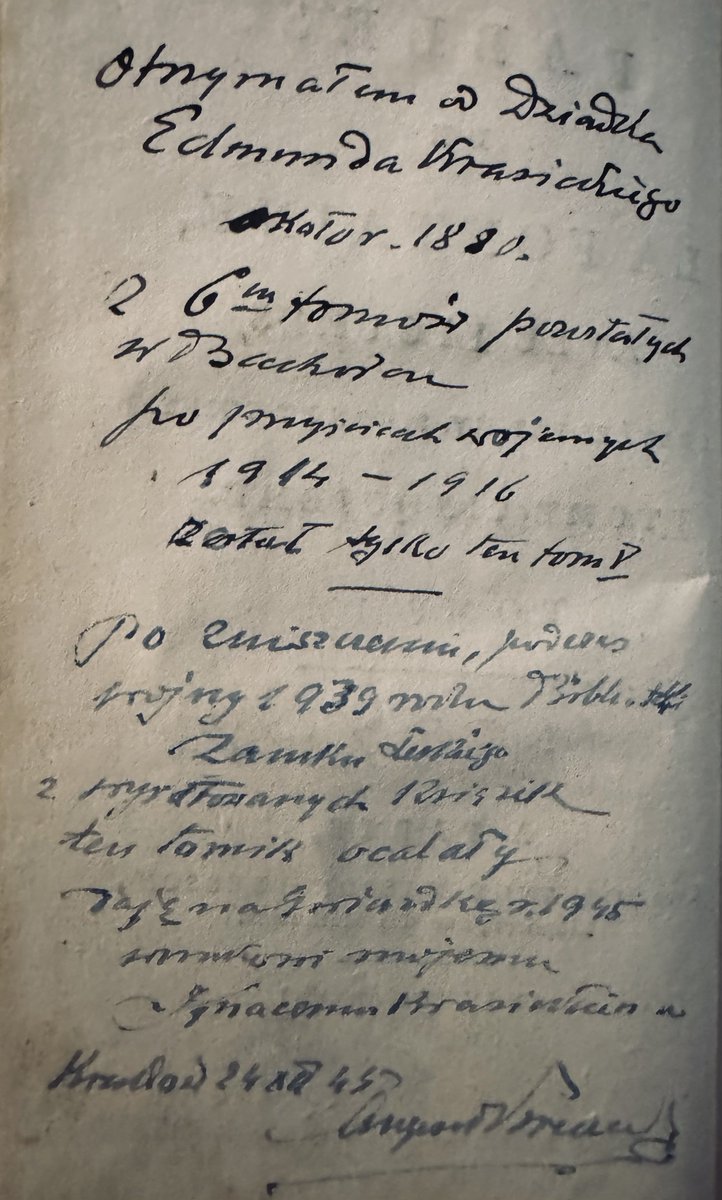 Otrzymałem od Dziadka
Edmunda Krasickiego
około r. 1880.
Z 6ᵐ tomów powstałych
w Bachórcu
po przejściach wojennych
1914 – 1916
został tylko ten tom V
Po zniszczeniu, podczas
wojny 1939 roku Biblioteki
Zamku Leskiego
z wyratowanych Książek
ten tomik ocalały
daję na Gwiazdkę r. 1945
wnukowi mojemu
Ignacemu Krasickiemu
Kraków 24 XII 45
August